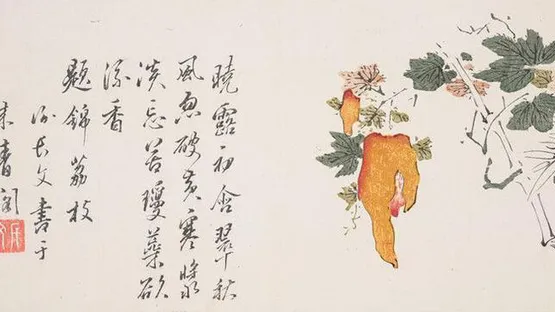 曉露初含翠秋
風忽破黃寒漿
淡忘苦瓊蘂欲
流香
題錦荔枝
長文書于
青閣